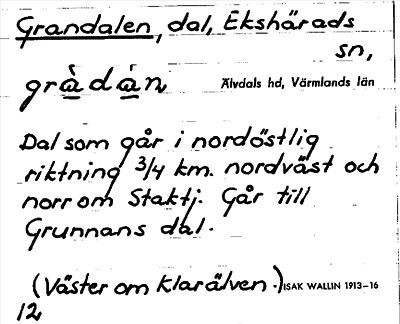 Grandalen, dal, Ekshärads
sn,
gràdán Älvdals hd, Värmlands län
Dal som går i nordöstlig
riktning 3/4 km. nordväst och
norr om Staktj. Går till
Grunnans dal.
(Väster om Klarälven.) ISAK WALLIN 1913-16
12